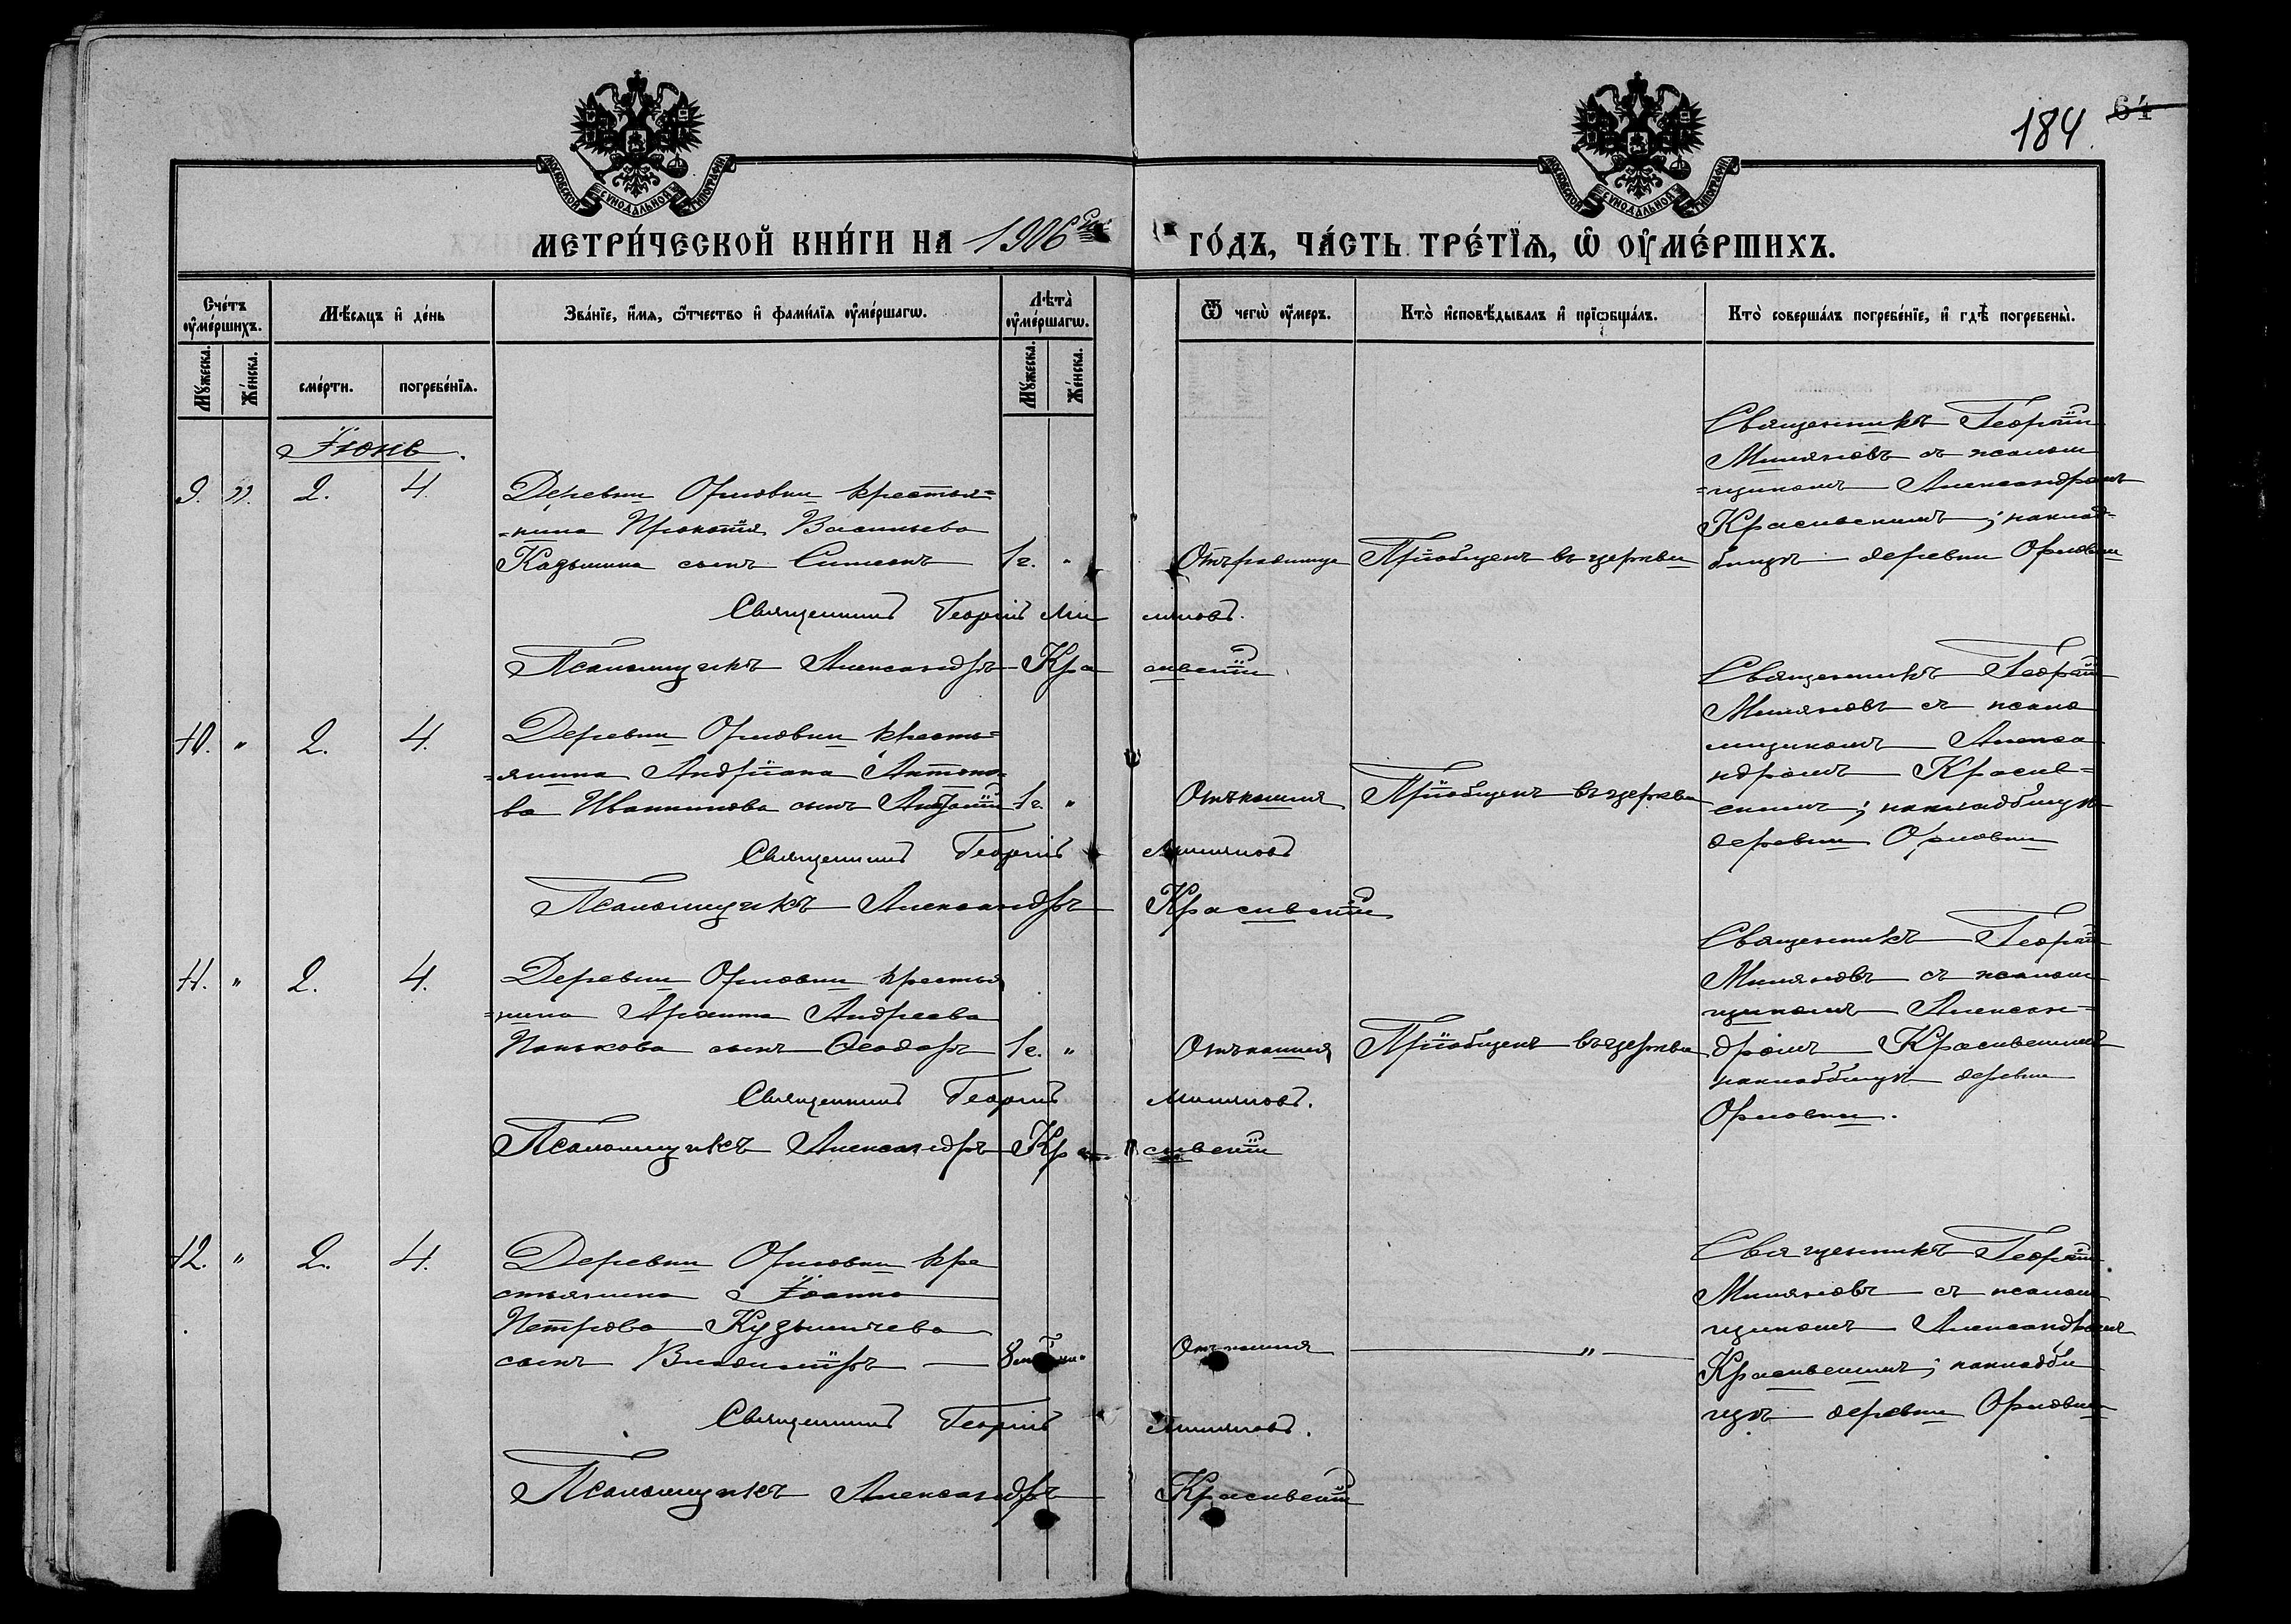 184.
64
МОСКОВСКОЙ СѴНОДАЛЬНОЙ ТИПОГРАФІИ
МОСКОВСКОЙ СѴНОДАЛЬНОЙ ТИПОГРАФІИ
МЕТРИ́ЧЕСКОЙ КНИ́ГИ НА 1906 ГО́ДЪ, ЧА́СТЬ ТРЕ́ТЇѦ, Ѡ҆ ОУ҆МЕ́РШИХЪ.
Сче́тъ оу҆ме́ршихъ.
Мѣ́сяцъ и҆ де́нь
Зва́нїе, и҆́мя, ѻ҆́тчество и҆ фами́лїя оу҆ме́ршагѡ.
Лѣта̀ оу҆ме́ршагѡ.
Ѿ чегѡ̀ оу҆́меръ.
Кто̀ и҆сповѣ́дывалъ и҆ прїѡбща́лъ.
Кто̀ соверша́лъ погребе́нїе, и҆ гдѣ̀ погребены̀.
Мꙋ́жеска.
Же́нска.
сме́рти.
погребе́нїя.
Мꙋ́жеска.
Же́нска.
Іюнь.
9. " 2. 4.
Деревни Орловки крестья=
=нина Прокопія Васильева
Кадышина сынъ Симеонъ 1 г. "
Отъ родимца
Пріобщенъ въ церкви
Священникъ Георгій
Миляновъ съ псалом
=щикомъ Александромъ
Красивскимъ; на клад=
бищѣ деревни Орловки
Священникъ Георгій Миляновъ.
Псаломщикъ Александръ Красивскій
10. " 2. 4.
Деревни Орловки кресть=
=янина Андріана Антоно=
ва Иванникова сынъ 1 г. "
Отъ кашля
Пріобщенъ въ церкви
Священникъ Георгій
Миляновъ съ псало
мщикомъ Алекса
ндромъ Красив=
скимъ; на кладбищѣ
деревни Орловки
Священникъ Георгій Миляновъ
Псаломщикъ Александръ Красивскій
11. " 2. 4.
Деревни Орловки крестья
=нина Андреева
Панькова сынъ Ѳеодоръ 1 г. "
Отъ кашля
Пріобщенъ въ церкви
Священникъ Георгій
Миляновъ съ псалом
щикомъ Алексан=
дромъ Красивскимъ
на кладбищѣ деревни
Орловки.
Священникъ Георгій Миляновъ.
Псаломщикъ Александръ Красивскій
12. " 2. 4.
Деревни Орловки кре
стьянина Іоанна
Петрова Кузьмичева
сынъ Владиміръ 8 "
Отъ кашля
"
Священникъ Георгій
Миляновъ съ псалом
щикомъ Александромъ
Красивскимъ; на кладби
щѣ деревни Орловки
Священникъ Георгій Миляновъ.
Псаломщикъ Александръ Красивскій